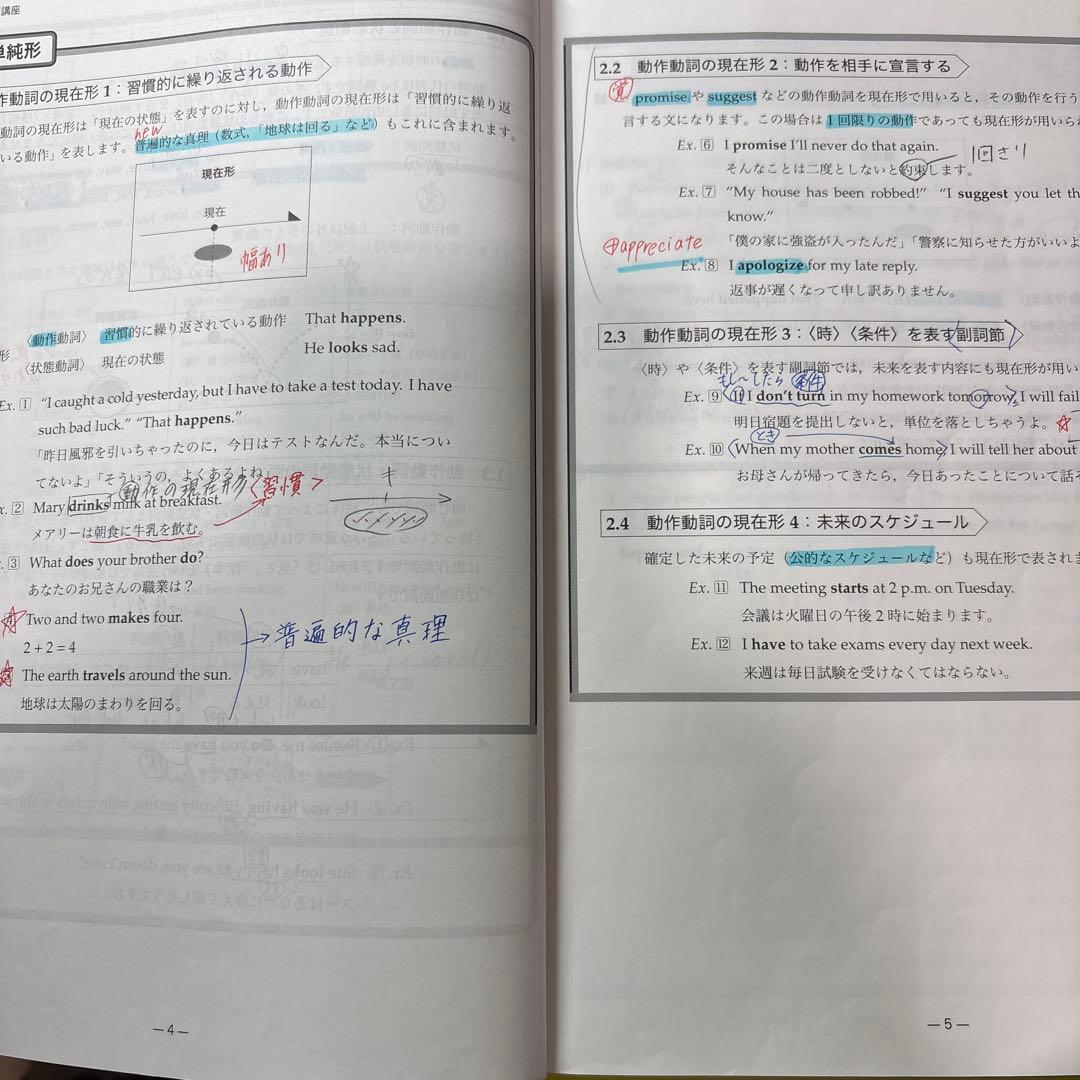 講座
単純形
作動詞の現在形 1：習慣的に繰り返される動作
動詞の現在形は「現在の状態」を表すのに対し，動作動詞の現在形は「習慣的に繰り返
new
いる動作」を表します。普遍的な真理（数式，「地球は回る」など）もこれに含まれます。
現在形
現在
幅あり
〈動作動詞〉 習慣的に繰り返されている動作 That happens.
形
〈状態動詞〉 現在の状態 He looks sad.
Ex. 1 “I caught a cold yesterday, but I have to take a test today. I have
such bad luck.” “That happens.”
「昨日風邪を引いちゃったのに，今日はテストなんだ。本当につい
てないよ」「そういうの，よくあるよね」
動作の現在形〈習慣〉
x. 2 Mary drinks milk at breakfast.
メアリーは朝食に牛乳を飲む。
. 3 What does your brother do?
あなたのお兄さんの職業は？
Two and two makes four.
2 + 2 = 4
→普遍的な真理
The earth travels around the sun.
地球は太陽のまわりを回る。
— 4 —
2.2 動作動詞の現在形 2：動作を相手に宣言する
覚
promise や suggest などの動作動詞を現在形で用いると，その動作を行う
言する文になります。この場合は 1 回限りの動作であっても現在形が用いられ
Ex. 6 I promise I’ll never do that again.
1回きり
そんなことは二度としないと約束します。
Ex. 7 “My house has been robbed!” “I suggest you let th
know.”
「僕の家に強盗が入ったんだ」「警察に知らせた方がいいよ
+appreciate
Ex. 8 I apologize for my late reply.
返事が遅くなって申し訳ありません。
2.3 動作動詞の現在形 3：〈時〉〈条件〉を表す副詞節
〈時〉や〈条件〉を表す副詞節では，未来を表す内容にも現在形が用い
もし〜したら 条件
Ex. 9 If I don’t turn in my homework tomorrow, I will fail
明日宿題を提出しないと，単位を落としちゃうよ。
とき
Ex. 10 When my mother comes home, I will tell her about
お母さんが帰ってきたら，今日あったことについて話そ
2.4 動作動詞の現在形 4：未来のスケジュール
確定した未来の予定（公的なスケジュールなど）も現在形で表されま
Ex. 11 The meeting starts at 2 p.m. on Tuesday.
会議は火曜日の午後 2 時に始まります。
Ex. 12 I have to take exams every day next week.
来週は毎日試験を受けなくてはならない。
— 5 —